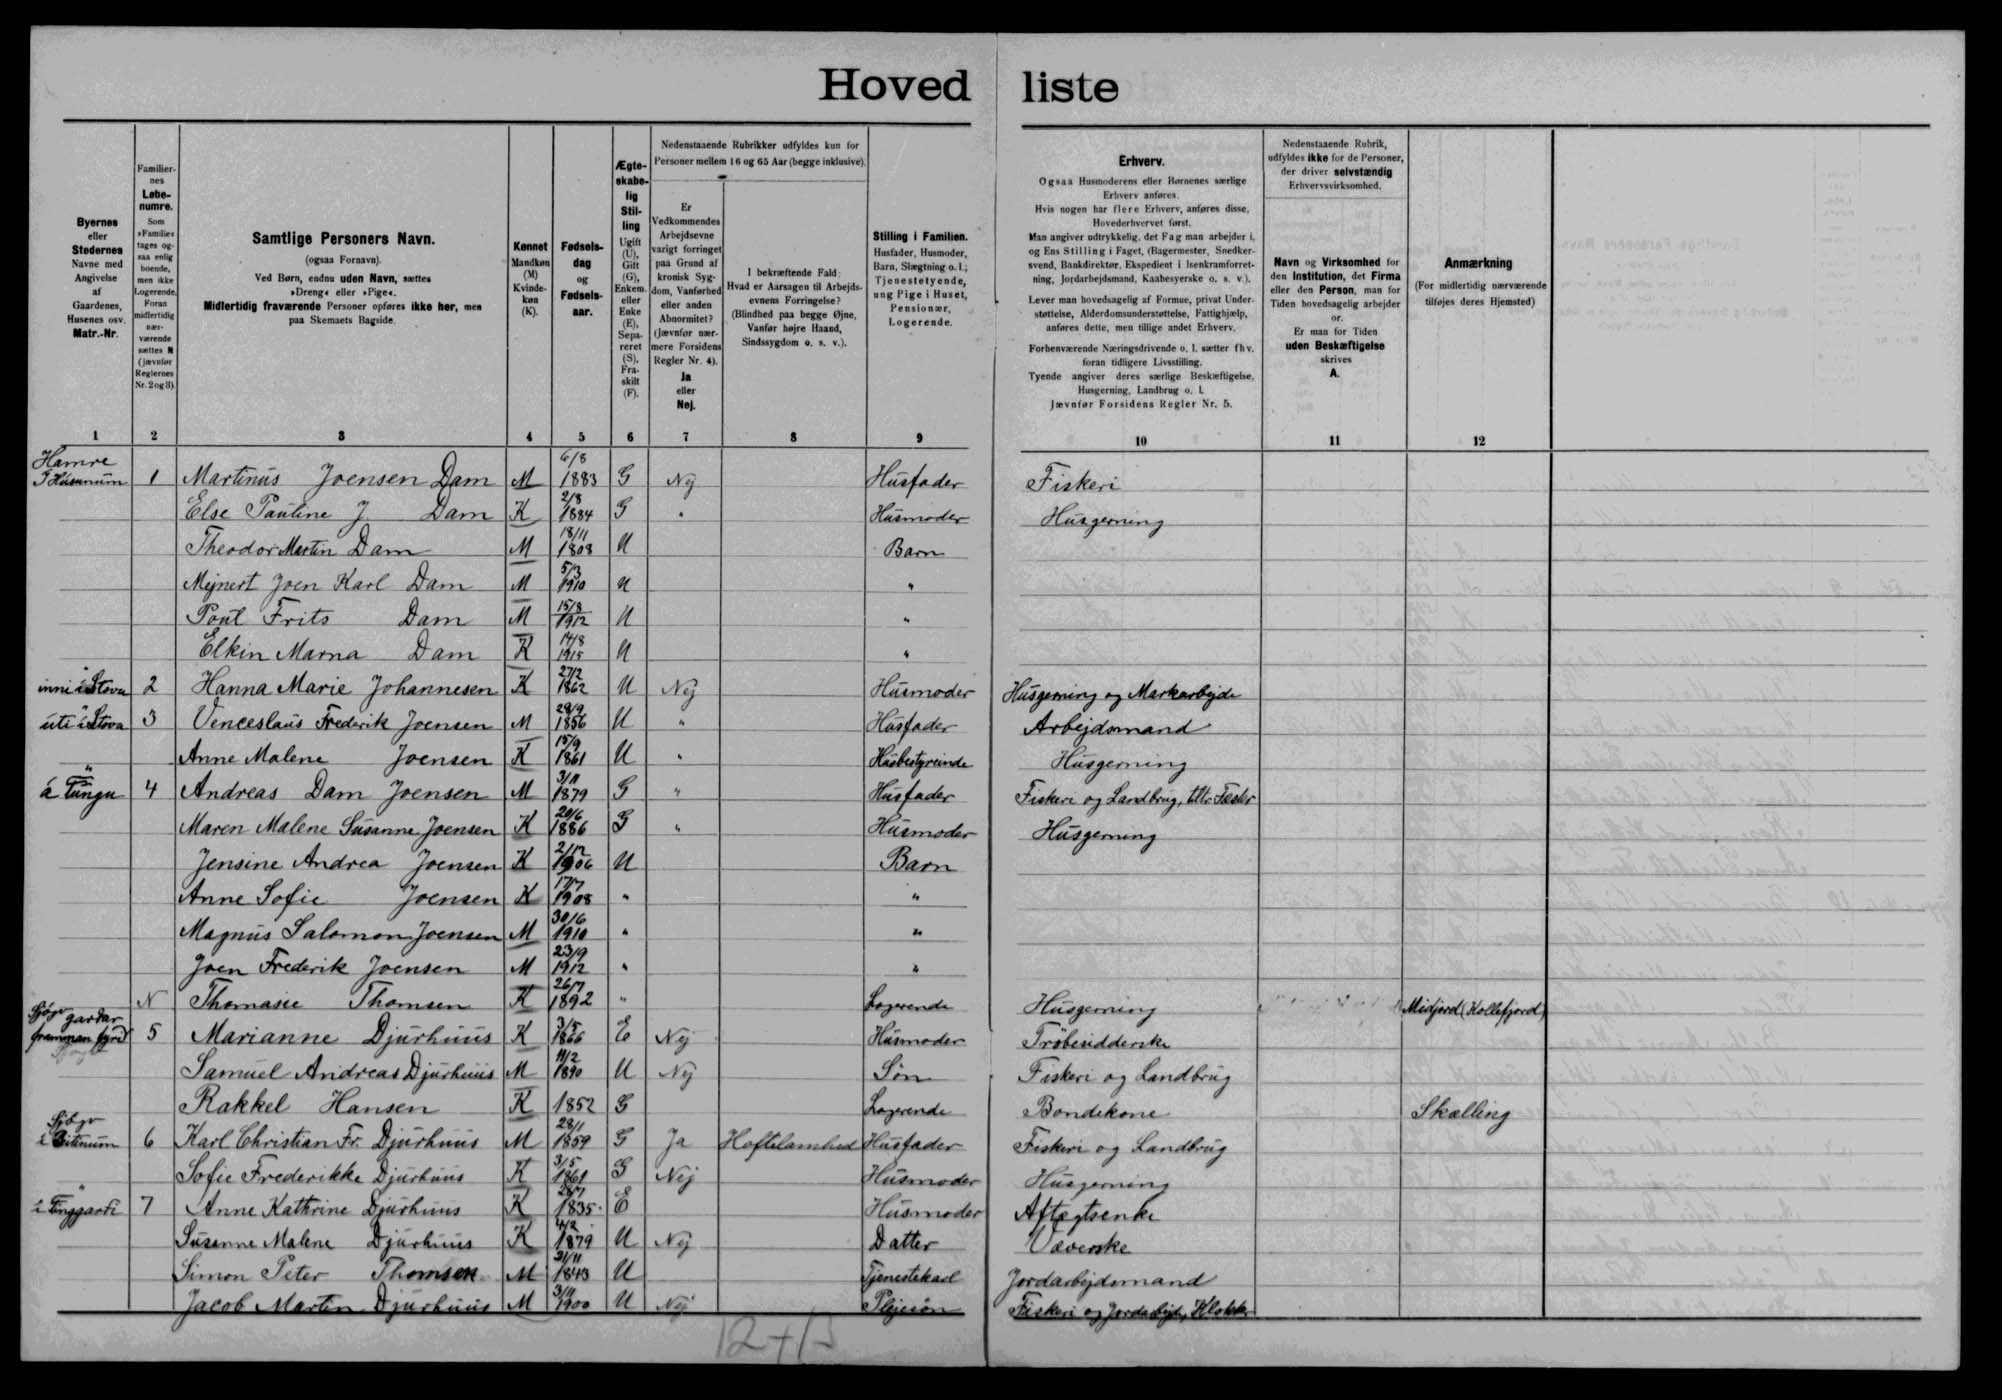 Hovedliste
Nedenstaaende Rubrikker udfyldes kun for
Personer mellem 16 og 65 Aar (begge inklusive).
Byernes
eller
Stedernes
Navne med
Angivelse
af
Gaardenes,
Husenes osv.
Matr.-Nr.
Familiernes
Løbenumre.
Som
»Familie«
tages ogsaa
enlig
boende,
men ikke
Logerende.
Foran
midlertidig
nærværende
sættes N
(jævnfør
Reglernes
Nr. 2 og II).
Samtlige Personers Navn.
(ogsaa Fornavn).
Ved Børn, endnu uden Navn, sættes
»Dreng« eller »Pige«.
Midlertidig fraværende Personer opføres ikke her, men
paa Skemaets Bagside.
Kønnet
Mandkøn
(M)
Kvindekøn
(K).
Fødselsdag
og
Fødselsaar.
Ægteskabelig
Stilling
Ugift
(U),
Gift
(G),
Enkem.
eller
Enke
(E),
Separeret
(S),
Fraskilt
(F).
Er
Vedkommendes
Arbejdsevne
varigt forringet
paa Grund af
kronisk Sygdom,
Vanførhed
eller anden
Abnormitet?
(Jævnfør nærmere
Forsidens
Regler Nr. 4).
Ja
eller
Nej.
I bekræftende Fald:
Hvad er Aarsagen til Arbejdsevnens
Forringelse?
(Blindhed paa begge Øjne,
Vanfør højre Haand,
Sindssygdom o. s. v.).
Stilling i Familien.
Husfader, Husmoder,
Barn, Slægtning o. l.;
Tjenestetyende,
ung Pige i Huset,
Pensionær,
Logerende.
Erhverv.
Ogsaa Husmoderens eller Børnenes særlige
Erhverv anføres.
Hvis nogen har flere Erhverv, anføres disse,
Hovederhvervet først.
Man angiver udtrykkelig, det Fag man arbejder i,
og Ens Stilling i Faget, (Bagermester, Snedkersvend,
Bankdirektør, Ekspedient i Isenkramforretning,
Jordarbejdsmand, Kaabesyerske o. s. v.).
Lever man hovedsagelig af Formue, privat Understøttelse,
Alderdomsunderstøttelse, Fattighjælp,
anføres dette, men tillige andet Erhverv.
Forhenværende Næringsdrivende o. l. sætter fhv.
foran tidligere Livsstilling.
Tyende angiver deres særlige Beskæftigelse,
Husgerning, Landbrug o. l.
Jævnfør Forsidens Regler Nr. 5.
Nedenstaaende Rubrik,
udfyldes ikke for de Personer,
der driver selvstændig
Erhvervsvirksomhed.
Navn og Virksomhed for
den Institution, det Firma
eller den Person, man for
Tiden hovedsagelig arbejder
for.
Er man for Tiden
uden Beskæftigelse
skrives
A.
Anmærkning
(For midlertidig nærværende
tilføjes deres Hjemsted)
1 2 3 4 5 6 7 8 9 10 11 12
Hamre
I Húsunum 1 Martinus Joensen Dam M 6/8 1883 G Nej Husfader Fiskeri
Else Pauline J Dam K 2/8 1884 G " Husmoder Husgerning
Theodor Martin Dam M 18/11 1908 U Barn
Mejnert Joen Karl Dam M 5/3 1910 U "
Poul Frits Dam M 15/8 1912 U "
Elkin Marna Dam K 14/8 1915 U "
inni í Stovu 2 Hanna Marie Johannesen K 27/2 1862 U Nej Husmoder Husgerning og Markarbejde
úti í Stova 3 Venceslaus Frederik Joensen M 28/9 1856 U " Husfader Arbejdsmand
Anne Malene Joensen K 15/9 1861 U " Husbestyreinde Husgerning
á Tungu 4 Andreas Dam Joensen M 3/11 1879 G " Husfader Fiskeri og Landbrug,
Maren Malene Susanne Joensen K 20/6 1886 G " Husmoder Husgerning
Jensine Andrea Joensen K 2/12 1906 U Barn
Anne Sofie Joensen K 17/7 1908 " "
Magnus Salomon Joensen M 30/6 1910 " "
Joen Frederik Joensen M 23/9 1912 " "
N Thomasie Thomsen K 26/7 1892 " Logerende Husgerning Midjord (Kollefjord)
Sjógv gardar
5 Marianne Djurhuus K 3/5 1866 E Nej Husmoder
Samuel Andreas Djurhuus M 11/2 1890 U Nej Søn Fiskeri og Landbrug
Rakkel Hansen K 1852 G Logerende Bondekone Skælling
Sjógv
6 Karl Christian Fr. Djurhuus M 28/1 1859 G Ja Hoftelamhed Husfader Fiskeri og Landbrug
Sofie Frederikke Djurhuus K 3/5 1861 G Nej Husmoder Husgerning
"
7 Anne Kathrine Djurhuus K 28/7 1835 E Husmoder Aftægtsenke
Susanne Malene Djurhuus K 4/2 1879 U Nej Datter Væverske
Simon Peter Thomsen M 21/11 1843 U Tjenestekarl Jordarbejdsmand
Jacob Martin Djurhuus M 3/11 1900 U Nej Plejesøn Fiskeri og Jordarbejde,
12+13